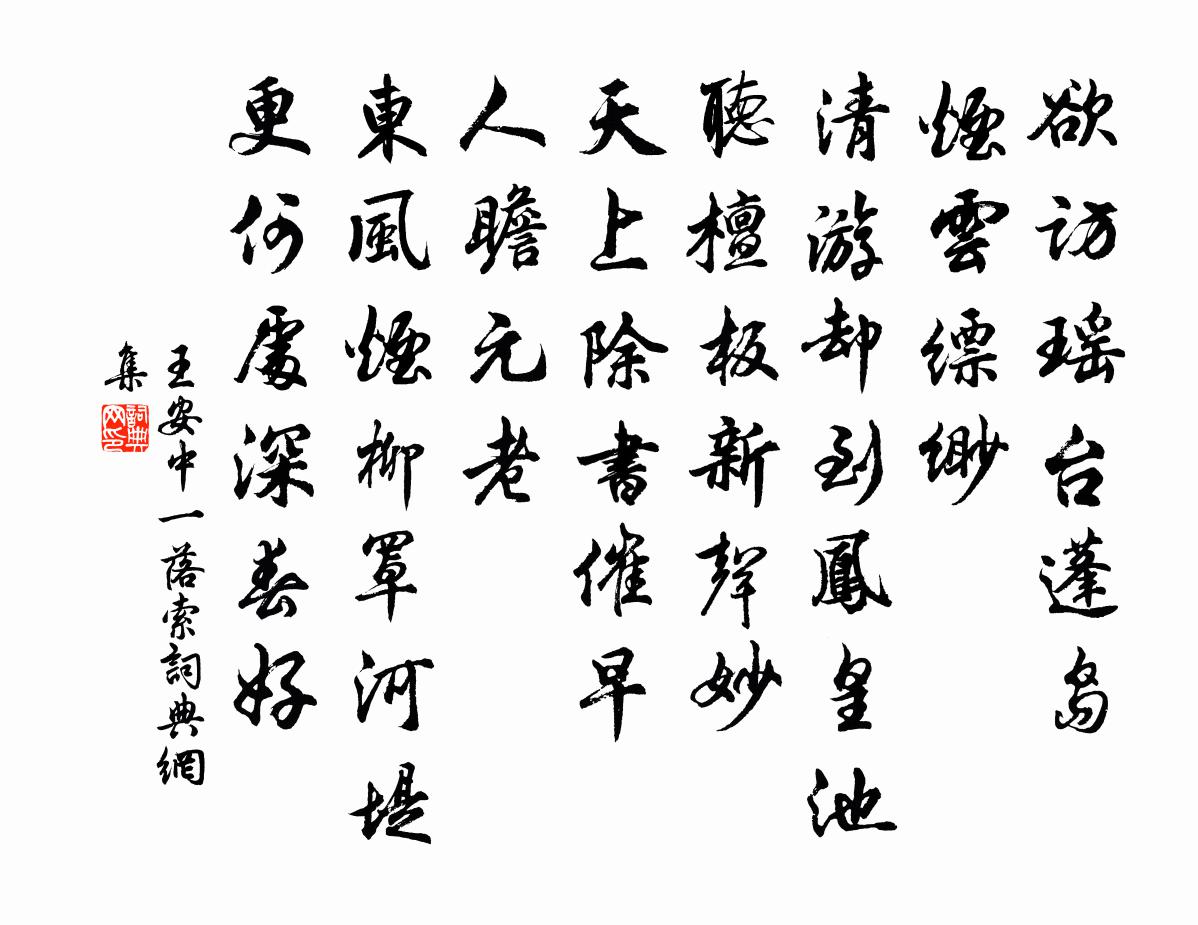 欲访瑶台蓬岛
煙雲縹緲
清游却到鳳皇池
聽檀板新聲妙
天上除書催早
人瞻元老
東風煙柳罩河堤
更何處深春好
王安中一落索詞典網
集
詞典
网印